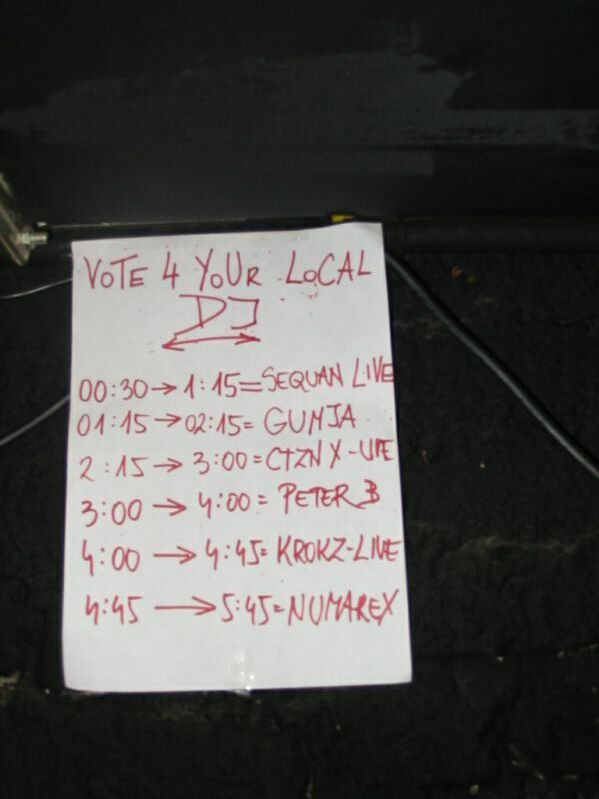 VOTE 4 YOUR LOCAL
DJ
00:30→1:15=SEQUAN LIVE
01:15→02:15=GUMJA
2:15→3:00=CTZN X-LIVE
3:00→4:00=PETER B
4:00→4:45=KROKZ-LIVE
4:45→5:45=NUMAREX